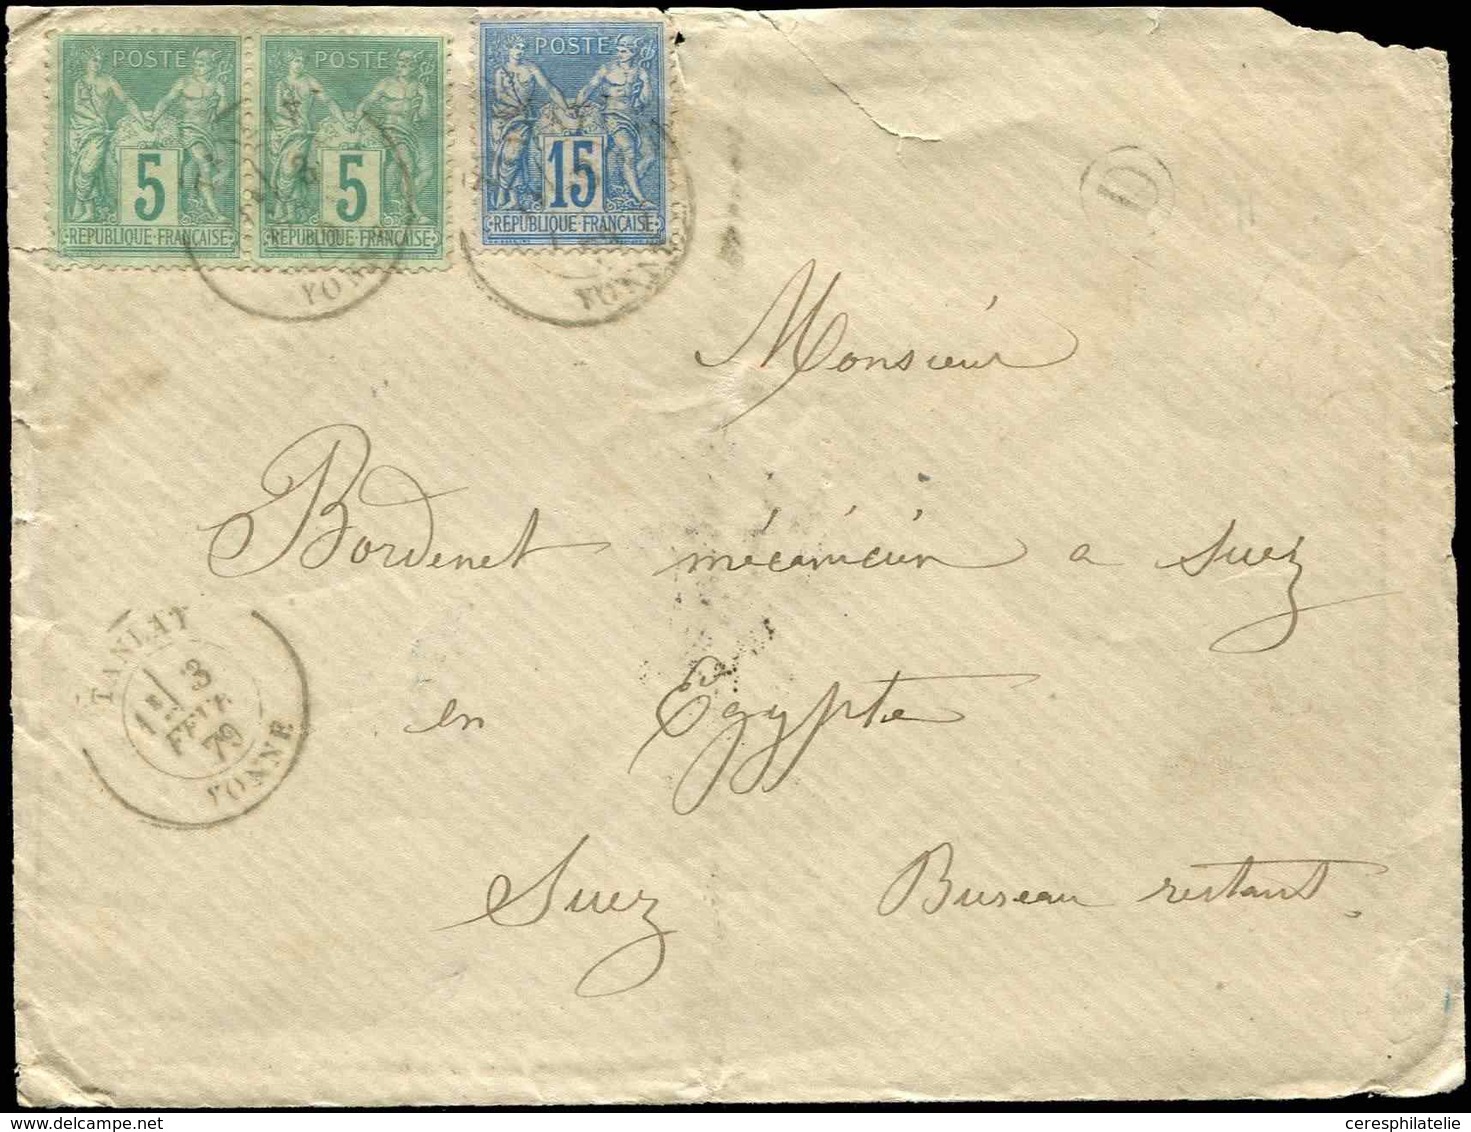 POSTE POSTE POSTE
5 5 15
REPUBLIQUE FRANÇAISE REPUBLIQUE FRANÇAISE REPUBLIQUE FRANÇAISE
YONNE
D
Monsieur
Bordenet mécanicien a Suez
TANLAY
3
FEVR
79
YONNE
en Égypte
Suez Bureau restant.
www.delcampe.net
ceresphilatelie